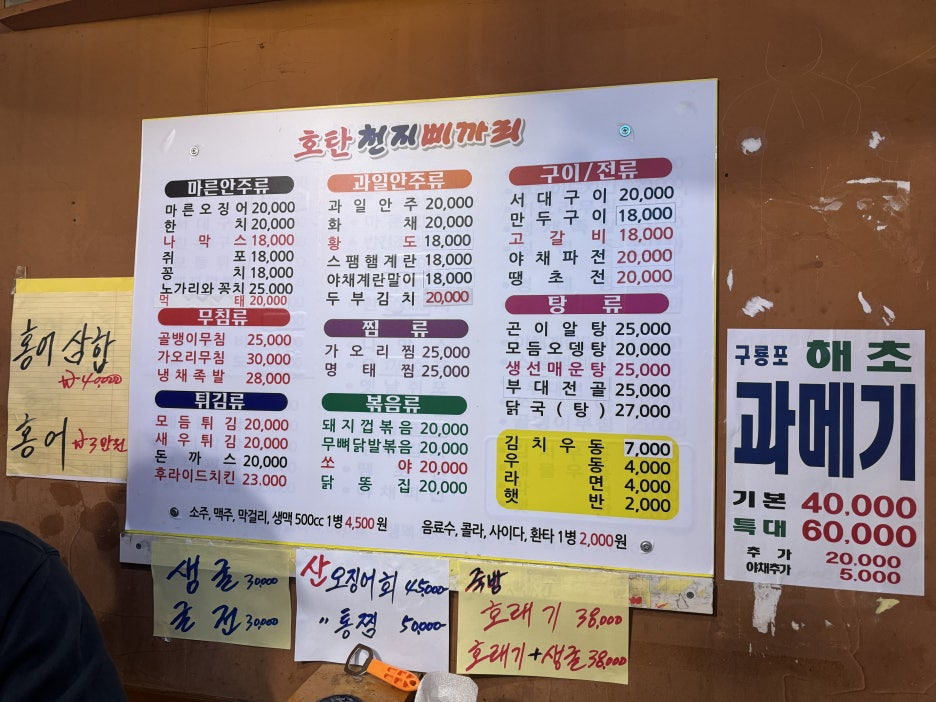 호탄천지삐까리
마른안주류
마른오징어 20,000
한치 20,000
나막스 18,000
쥐포 18,000
꽁치 18,000
노가리와꽁치 25.000
먹태 20,000
무침류
골뱅이무침 25,000
가오리무침 30,000
냉채족발 28,000
튀김류
모듬튀김 20,000
새우튀김 20,000
돈까스 20,000
후라이드치킨 23.000
과일안주류
과일안주 20,000
화채 20,000
황도 18,000
스팸햄계란 18,000
야채계란말이 18,000
두부김치 20,000
찜류
가오리찜 25,000
명태찜 25,000
볶음류
돼지껍볶음 20,000
무뼈닭발볶음 20,000
쏘야 20,000
닭똥집 20,000
구이/전류
서대구이 20,000
만두구이 18,000
고갈비 18,000
야채파전 20,000
땡초전 20,000
탕류
곤이알탕 25,000
모듬오뎅탕 20,000
생선매운탕 25,000
부대전골 25,000
닭국(탕) 27,000
김치우동 7,000
우동 4,000
라면 4,000
햇반 2,000
소주, 맥주, 막걸리, 생맥 500cc 1병 4,500원
음료수, 콜라, 사이다, 환타 1병 2,000원
홍어삼합
₩40000
홍어 ₩3만전
생굴 30,000
굴전 30,000
산오징어회 45,000
〃 통찜 50,000
호래기 38,000
호래기+생굴 38,000
구룡포 해초
과메기
기본 40.000
특대 60.000
추가 20.000
야채추가 5.000